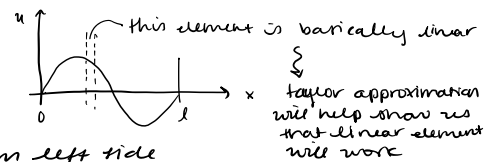 u
this element is basically linear
0
l
x
taylor approximation
will help show us
that linear element
will work
n left side